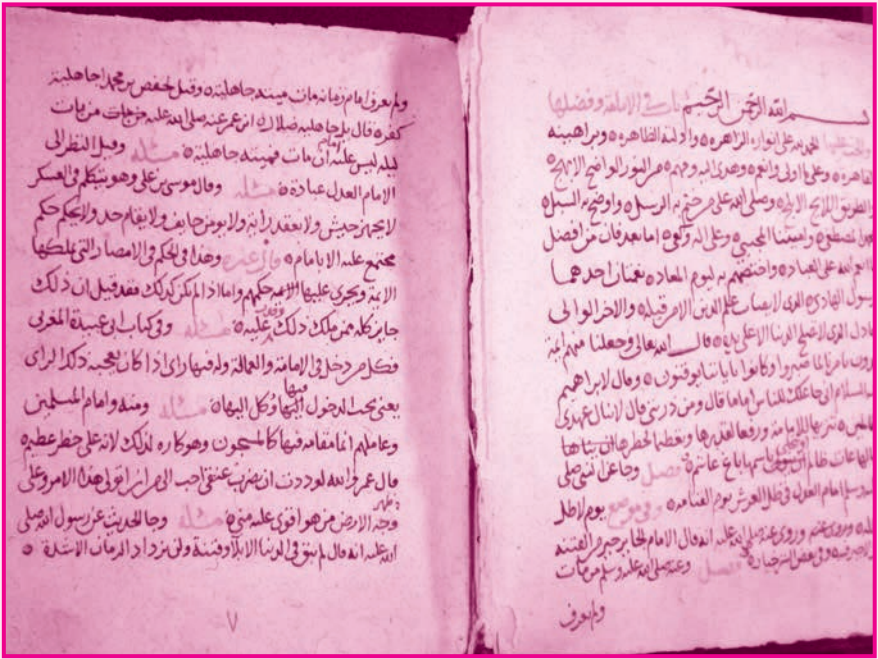 بسم الله الرحمن الرحيم باب في الإمامة وفضلها
الحمد لله على أنواره الزاهره وأدلته الظاهره وبراهينه
القاهره وعلى ما أولى وأنعم وهدى إليه وفهم من النور الواضح الأبهج
والطريق اللايح الأبلج وصلى الله على من ختم به الرسل وأوضح به السبل
المصطفى وأمينه المجتبى وعلى آله وكرم أما بعد فإن من أفضل
ما أنعم الله على العباد واختصهم به ليوم المعاد نعمتان أحدهما
الرسول الهادي الذي لا يصاب علم الدين إلا من قبله والآخر الوالي
العادل الذي لا تصلح الدنيا إلا على يديه قال الله تعالى وجعلنا منهم أئمة
يهدون بأمرنا لما صبروا وكانوا بآياتنا يوقنون وقال لإبراهيم
عليه السلام إني جاعلك للناس إماما قال ومن ذريتي قال لا ينال عهدي
الظالمين تنزيها للإمامة ورفعا لقدرها وتعظيما لخطرها أن ينالها
ظالم أو باغ غاشم فصل وجا عن النبي صلى
وسلم إمام العدل في ظل العرش يوم القيامة وفي موضع يوم لا ظل
وروي عنه صلى الله عليه أنه قال الإمام الجاير خير من الفتنة
فصل وعنه صلى الله عليه وسلم من مات
ولم يعرف
ولم يعرف إمام زمانه مات ميتة جاهلية وقيل لحفص بن محمد أجاهلية
كفر قال بل جاهلية ضلال ابن عمر عنه صلى الله عليه من مات
ليله ليس عليه إمام مات فميتته جاهلية مسئلة وقيل النظر إلى
الإمام العدل عبادة مسئلة وقال موسى بن علي وهو يتكلم في العسكر
لا يجهز جيش ولا تعقد راية ولا يومن خايف ولا يقام حد ولا يحكم حكم
مجتمع عليه إلا بإمام قال غيره وهذا في الحكم في الأمصار التي يملكها
الأئمة ويجري عليها الأئمة حكمهم وأما إذا لم يكن كذلك فقد قيل إن ذلك
جايز كله ممن ملك ذلك وقدر عليه مسئلة وفي كتاب أبي عبيدة المغربي
فكل من دخل في الإمامة والعمالة وله فيها رأي إذا كان يعجبه ذلك الرأي
يعني يحب الدخول فيها وكل إليها مسئلة ومنه وإمام المسلمين
وعاملهم إنما مقامه فيها كالمسجون وهو كاره لذلك لأنه على خطر عظيم
قال عمر والله لوددت أن يضرب عنقي أحب إلي من أن أتولى هذا الأمر وعلى
وجه ظهر الأرض من هو أقوى عليه مني مسئلة وجا الحديث عن رسول الله صلى
الله عليه أنه قال لم يبق في الدنيا إلا بلاء وفتنة ولن يزداد الزمان إلا شدة
٧